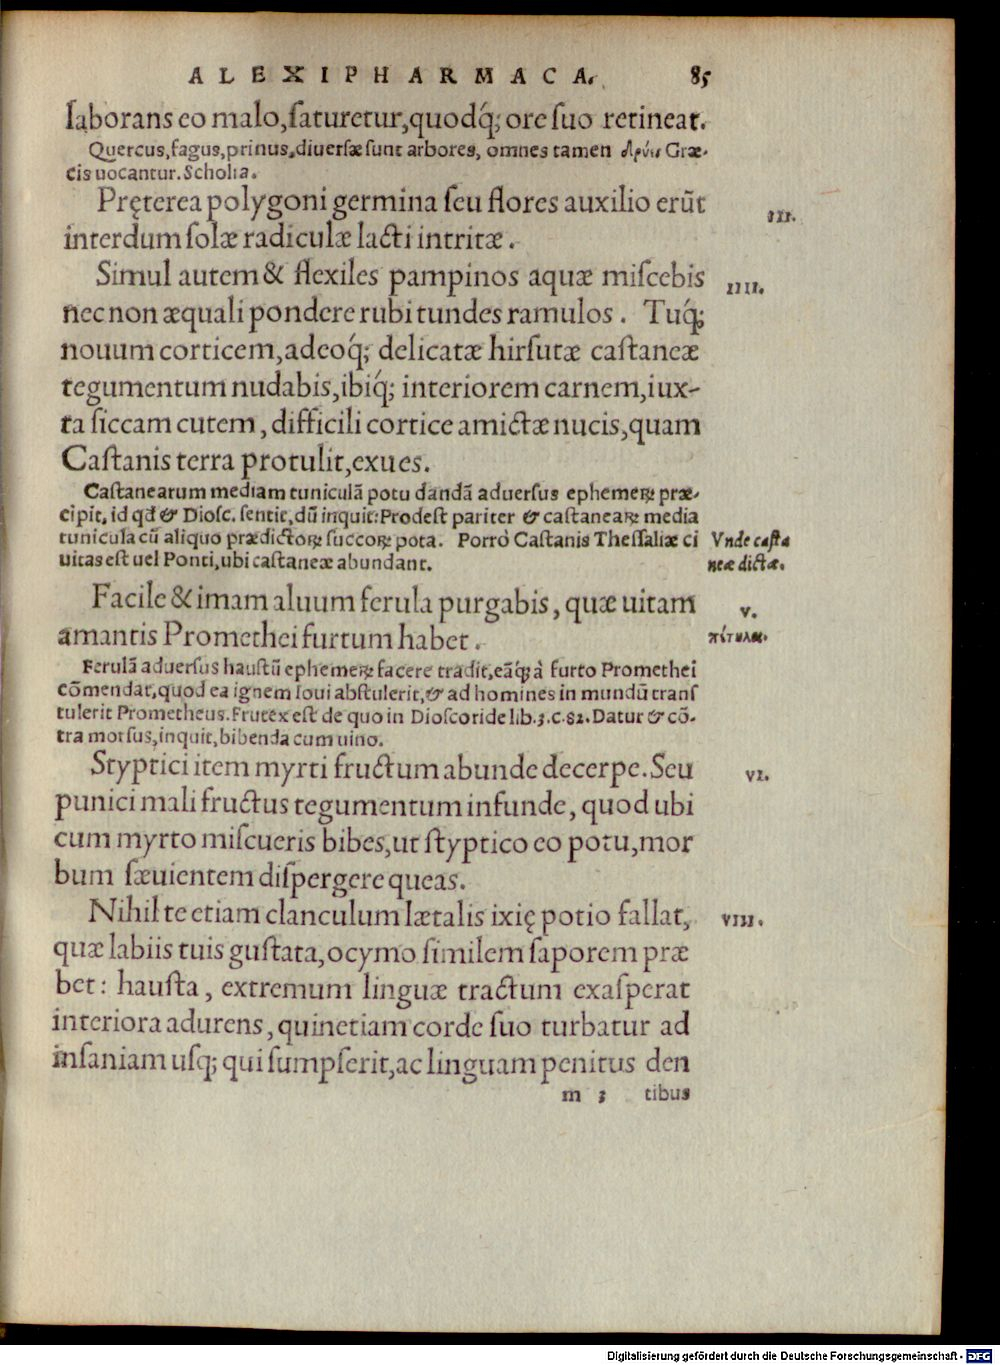 ALEXIPHARMACA. 85
laborans eo malo, ſaturetur, quodq́; ore ſuo retineat.
Quercus, fagus, prinus, diuerſæ ſunt arbores, omnes tamen Græ-
cis uocantur. Scholia.
Pręterea polygoni germina ſeu flores auxilio erũt
III.
interdum ſolæ radiculæ lacti intritæ.
Simul autem & flexiles pampinos aquæ miſcebis
IIII.
nec non æquali pondere rubi tundes ramulos. Tuq́;
nouum corticem, adeoq́; delicatæ hirſutæ caſtaneæ
tegumentum nudabis, ibiq́; interiorem carnem, iux-
ta ſiccam cutem, difficili cortice amictæ nucis, quam
Caſtanis terra protulit, exues.
Caſtanearum mediam tuniculã potu dandã aduerſus ephemeꝝ præ-
cipit, id qđ & Dioſc. ſentit, dũ inquit: Prodeſt pariter & caſtaneaꝝ media
tunicula cũ aliquo prædictoꝝ ſuccoꝝ pota. Porrò Caſtanis Theſſaliæ ci
Vnde caſta
uitas eſt uel Ponti, ubi caſtaneæ abundant.
neæ dictæ.
Facile & imam aluum ferula purgabis, quæ uitam
V.
amantis Promethei furtum habet.
Ferulã aduerſus hauſtũ ephemeꝝ facere tradit, eãq́; à furto Promethei
cõmendat, quod ea ignem Ioui abſtulerit, & ad homines in mundũ tranſ
tulerit Prometheus. Frutex eſt de quo in Dioſcoride lib. 3. C. 82. Datur & cõ-
tra morſus, inquit, bibenda cum uino.
Styptici item myrti fructum abunde decerpe. Seu
VI.
punici mali fructus tegumentum infunde, quod ubi
cum myrto miſcueris bibes, ut ſtyptico eo potu, mor
bum ſæuientem diſpergere queas.
Nihil te etiam clanculum lætalis ixię potio fallat,
VIII.
quæ labiis tuis guſtata, ocymo ſimilem ſaporem præ
bet: hauſta, extremum linguæ tractum exaſperat
interiora adurens, quinetiam corde ſuo turbatur ad
inſaniam uſq; qui ſumpſerit, ac linguam penitus den
m 3 tibus
Digitalisierung gefördert durch die Deutsche Forschungsgemeinschaft - DFG